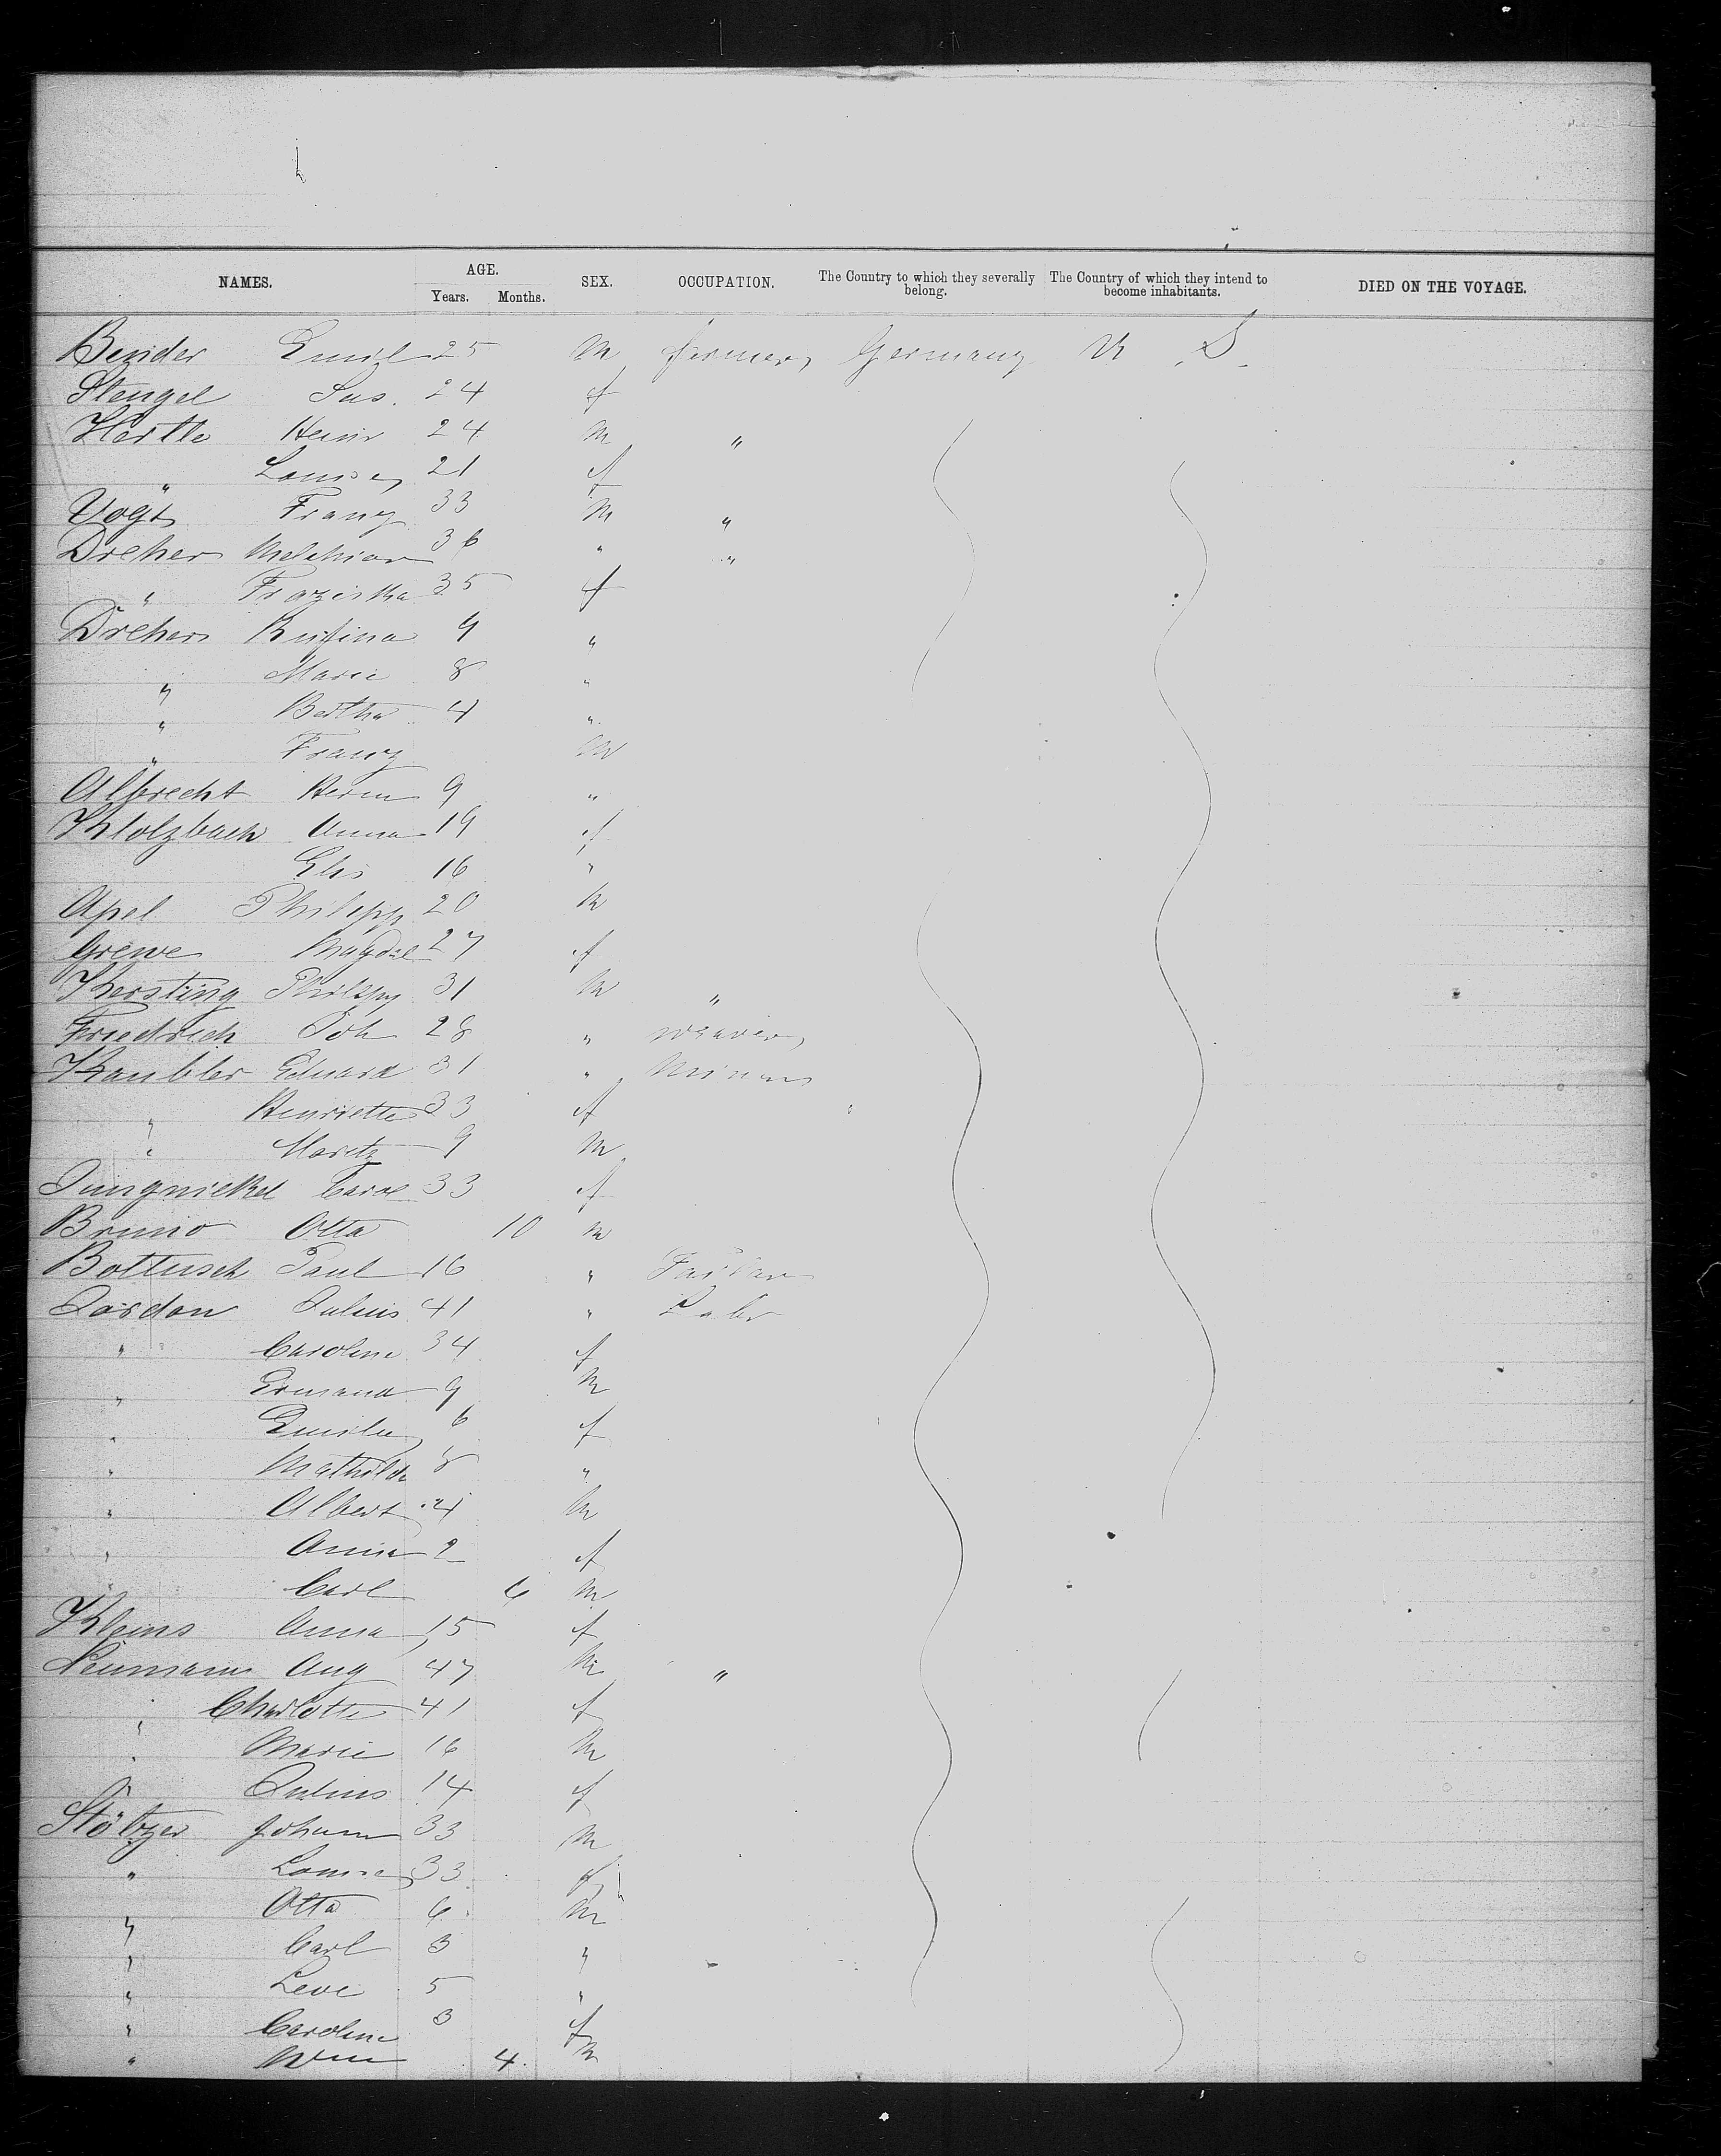 NAMES. AGE. SEX. OCCUPATION. The Country to which they severally belong. The Country of which they intend to become inhabitants. DIED ON THE VOYAGE.
Years. Months.
Bender Emil 25 m farmer Germany U S.
Stengel Sus. 24 f
Hertle Heinr 24 m "
" Louise 21 f
Vogt Franz 33 m "
Dreher Melchior 36 " "
" Fraziska 35 f
Dreher Rufina 9 "
" Marie 8 "
" Bertha 4 "
" Franz m
Albrecht Herm 9 "
Klolzbach Anna 19 f
Elis 16 "
Apel Philipp 20 m
Grewe Magdal 27 f
Kersting Philipp 31 m "
Friedrich Joh 28 " weaver
Kaubler Eduard 31 " Miner
" Henriette 33 f
" Moritz 9 m
Jungnickel Carol 33 f
Bruno Otto 10 m
Bottusch Paul 16 "
Jordan Julius 41 " Labr
" Caroline 34 f
" 9 m
" Emilie 6 f
" Mathilde 8 "
" Albert 4 m
" Anna 2 f
" Carl 6 m
Kleins Anna 15 f
Neumann Aug 47 m "
" Charlotte 41 f
" Marie 16 m
" Julius 14 f
Stötzer Johann 33 m
" Louise 33 f
" Otto 6 m
" Carl 3 "
" 5 "
" Caroline 3 f
" Wm 4 m